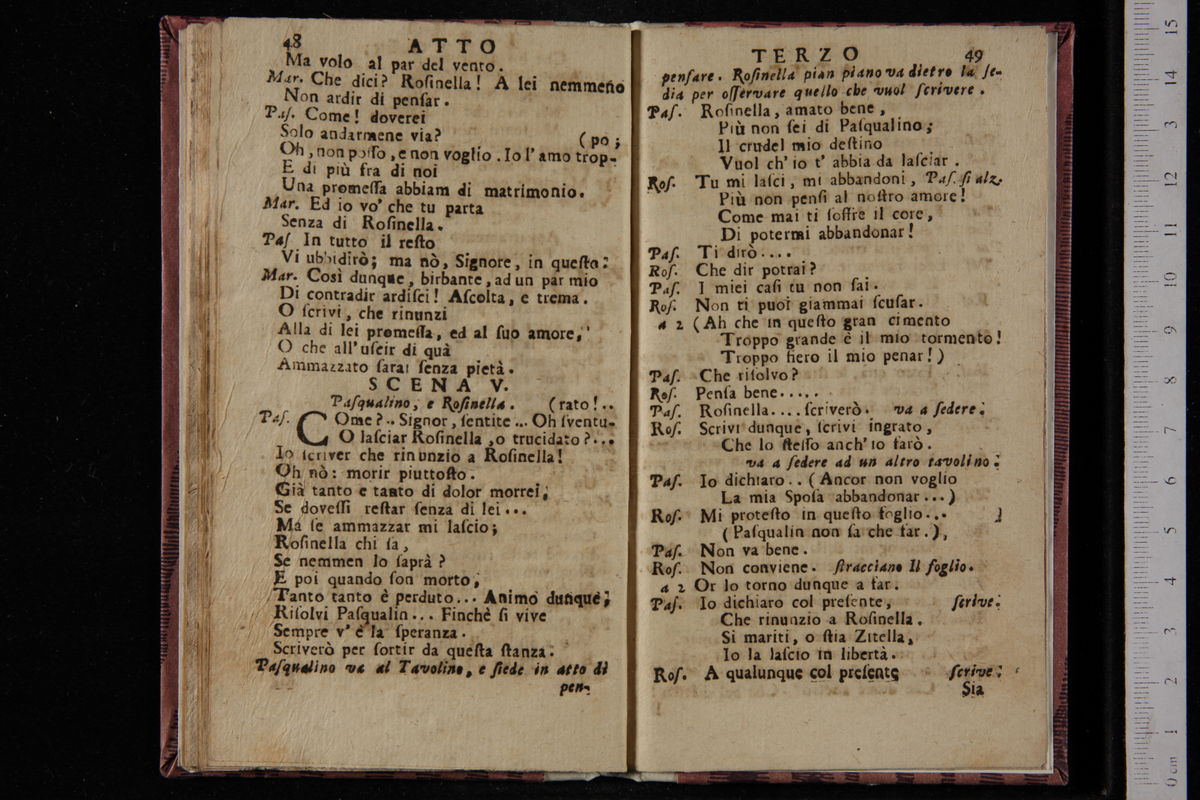 48 ATTO
Ma volo al par del vento.
Mar. Che dici? Roſinella! A lei nemmeno
Non ardir di penſar.
Paſ. Come! doverei
Solo andarmene via? (po;
Oh, non poſſo, e non voglio. Io l'amo trop-
E di più fra di noi
Una promeſſa abbiam di matrimonio.
Mar. Ed io vo' che tu parta
Senza di Roſinella.
Paſ In tutto il reſto
Vi ubbidirò; ma nò, Signore, in queſto:
Mar. Così dunque, birbante, ad un par mio
Di contradir ardiſci! Aſcolta, e trema.
O ſcrivi, che rinunzi
Alla di lei promeſſa, ed al ſuo amore,
O che all'uſcir di quà
Ammazzato ſarai ſenza pietà.
SCENA V.
Paſqualino, e Roſinella. (rato!..
Paſ. COme?.. Signor, ſentite... Oh ſventu-
O laſciar Roſinella, o trucidato?...
Io ſcriver che rinunzio a Roſinella!
Oh nò: morir piuttoſto.
Già tanto e tanto di dolor morrei,
Se doveſſi reſtar ſenza di lei...
Ma ſe ammazzar mi laſcio;
Roſinella chi ſa,
Se nemmen lo ſaprà?
E poi quando ſon morto,
Tanto tanto è perduto... Animo dunque;
Riſolvi Paſqualin... Finchè ſi vive
Sempre v'è la ſperanza.
Scriverò per ſortir da queſta ſtanza.
Paſqualino va al Tavolino, e ſiede in atto di
pen-
TERZO 49
penſare. Roſinella pian piano va dietro la ſe-
dia per oſſervare quello che vuol ſcrivere.
Paſ. Roſinella, amato bene,
Più non ſei di Paſqualino;
Il crudel mio deſtino
Vuol ch'io t'abbia da laſciar.
Roſ. Tu mi laſci, mi abbandoni, Paſ. ſi alz.
Più non penſi al noſtro amore!
Come mai ti ſoffre il core,
Di potermi abbandonar!
Paſ. Ti dirò....
Roſ. Che dir potrai?
Paſ. I miei caſi tu non ſai.
Roſ. Non ti puoi giammai ſcuſar.
a 2 (Ah che in queſto gran cimento
Troppo grande è il mio tormento!
Troppo fiero il mio penar!)
Paſ. Che riſolvo?
Roſ. Penſa bene.....
Paſ. Roſinella.... ſcriverò. va a ſedere;
Roſ. Scrivi dunque, ſcrivi ingrato,
Che lo ſteſſo anch'io farò.
va a ſedere ad un altro tavolino;
Paſ. Io dichiaro.. (Ancor non voglio
La mia Spoſa abbandonar...)
Roſ. Mi proteſto in queſto foglio...
(Paſqualin non ſa che far.)
Paſ. Non va bene.
Roſ. Non conviene. ſtracciano Il foglio.
a 2 Or lo torno dunque a far.
Paſ. Io dichiaro col preſente, ſcrive;
Che rinunzio a Roſinella.
Si mariti, o ſtia Zitella,
Io la laſcio in libertà.
Roſ. A qualunque col preſente ſcrive;
Sia
0 cm 1 2 3 4 5 6 7 8 9 10 11 12 13 14 15